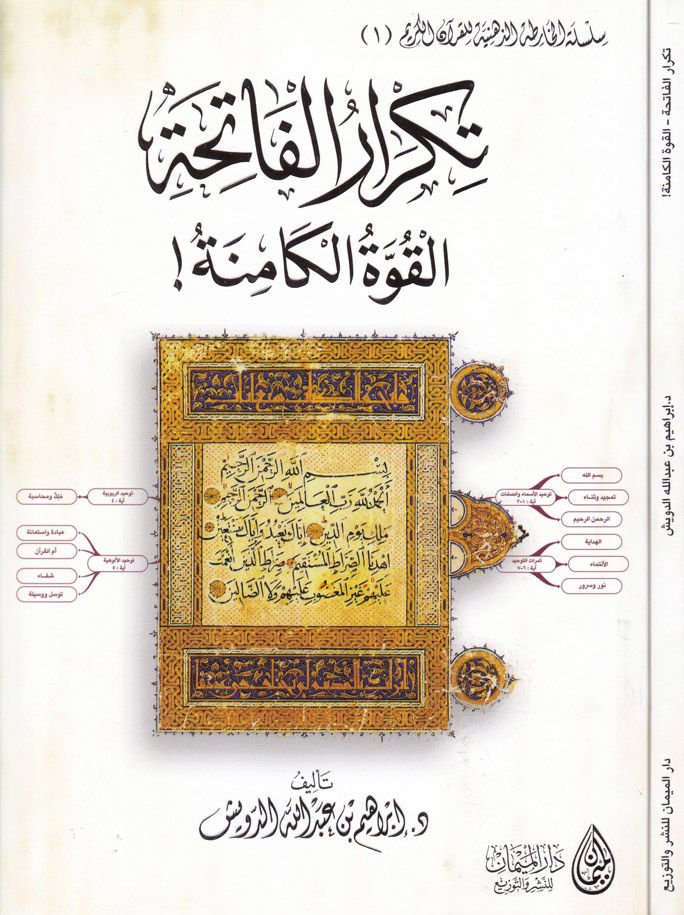 سلسلة الخارطة الذهنية للقرآن الكريم (١)
تِكرَارُ الفَاتِحَةِ
القُوَّةُ الكَامِنَةُ!
بِسْمِ اللهِ الرَّحْمَنِ الرَّحِيمِ
الحمد لله رب العالمين الرحمن الرحيم
ملك يوم الدين إياك نعبد وإياك نستعين
اهدنا الصراط المستقيم صراط الذين أنعمت
عليهم غير المغضوب عليهم ولا الضالين
بسم الله
تمجيد وثناء
الرحمن الرحيم
توحيد الأسماء والصفات
آية : ١-٣
الهداية
الأنتماء
نور وسرور
ثمرات التوحيد
آية : ٦-٧
توحيد الربوبية
آية : ٤
مُلكٌ ومحاسبة
توحيد الألوهية
آية : ٥
عبادة واستعانة
أم القرآن
شفاء
توسل ووسيلة
تأليف
د. إبراهيم بن عبد الله الدويش
دار الميمان
للنشر والتوزيع
الميمان
تكرار الفاتحة - القوة الكامنة!
د.إبراهيم بن عبدالله الدويش
دار الميمان للنشر والتوزيع